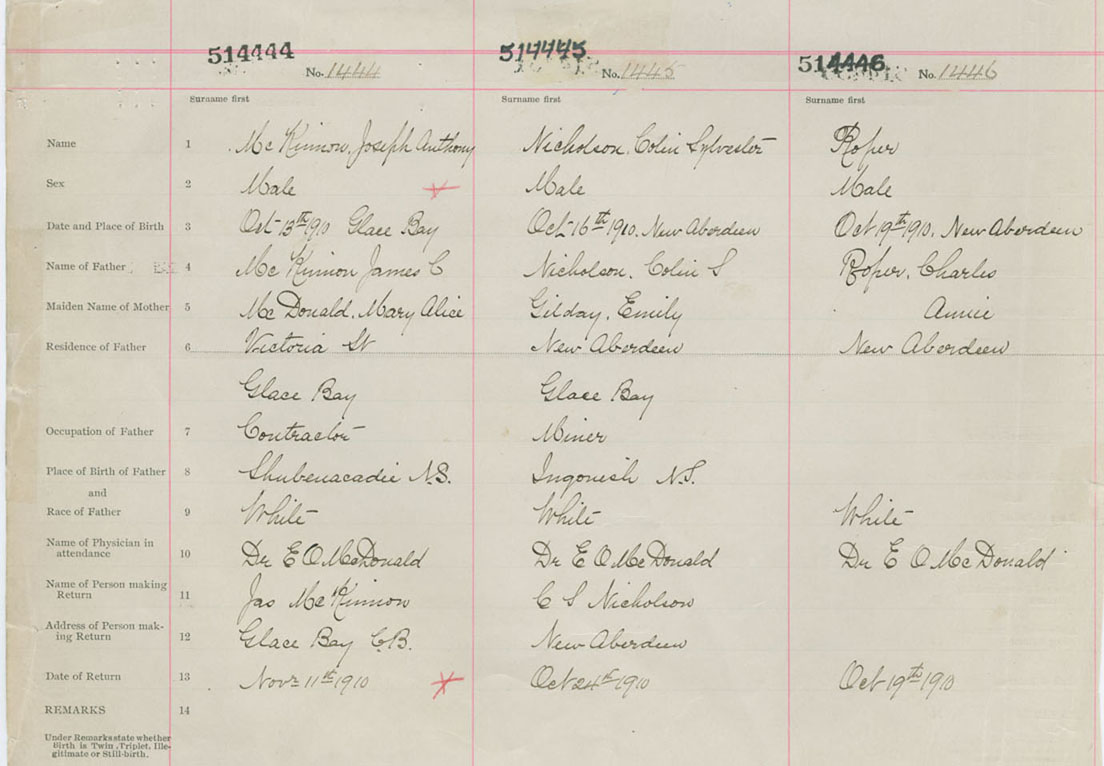 514444 514445 514446
No. 1444 No. 1445 No. 1446
Surname first Surname first Surname first
Name 1 Mc Kinnon, Joseph Anthony Nicholson, Colin Sylvester Roper
Sex 2 Male Male Male
Date and Place of Birth 3 Oct 13th 1910 Glace Bay Oct 16th 1910. New Aberdeen Oct 19th 1910. New Aberdeen
Name of Father 4 Mc Kinnon James C Nicholson, Colin S Roper, Charles
Maiden Name of Mother 5 Mc Donald, Mary Alice Gilday, Emily Annie
Residence of Father 6 Victoria St New Aberdeen New Aberdeen
Glace Bay Glace Bay
Occupation of Father 7 Contractor Miner
Place of Birth of Father 8 Shubenacadie N.S. Ingonish N.S.
and
Race of Father 9 White White White
Name of Physician in
attendance 10 Dr E O McDonald Dr E O McDonald Dr E O McDonald
Name of Person making
Return 11 Jas McKinnon C S Nicholson
Address of Person mak-
ing Return 12 Glace Bay C.B. New Aberdeen
Date of Return 13 Novr 11th 1910 Oct 24th 1910 Oct 19th 1910
REMARKS 14
Under Remarks state whether
Birth is Twin, Triplet, Ille-
gitimate or Still-birth.